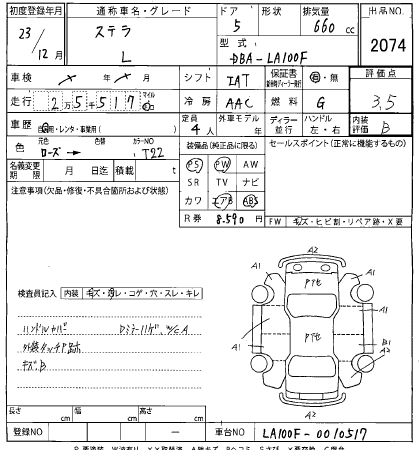 初度登録年月 通称車名・グレード ドア 形状 排気量 出品NO.
23/12月 ステラ L 5 660cc 2074
型式 DBA-LA100F
車検 シフト IAT 保証書 有・無 評価点
走行 2万5千517 マイル 冷房 AAC 燃料 G 3.5
車歴 自家用・レンタ・事業用( ) 定員 4人 外車モデル ディラー 並行 ハンドル 左・右 内装評価 B
色 元色 ローズ 色替 → カラーNO T22
装備品(純正品に限る) セールスポイント(正常に機能するもの)
名義変更期限 月 日迄 積載 t
PS PW AW
注意事項(欠品・修復・不具合箇所および状態)
SR TV ナビ
カワ エアB ABS
R券 8.590円
FW キズ・ヒビ割・リペア跡・X要
検査員記入 内装 キズ・汚レ・コゲ・穴・スレ・キレ
ハンドルカバー Dミラーハゲ
外装タッチP
キズ,B
A2
A1 A1
Pアせ
A1 A1
Pアせ
B1
A1
A1 A2
A2
長さ cm 幅 cm 高さ cm
登録NO ー 車台NO LA100F-0010517